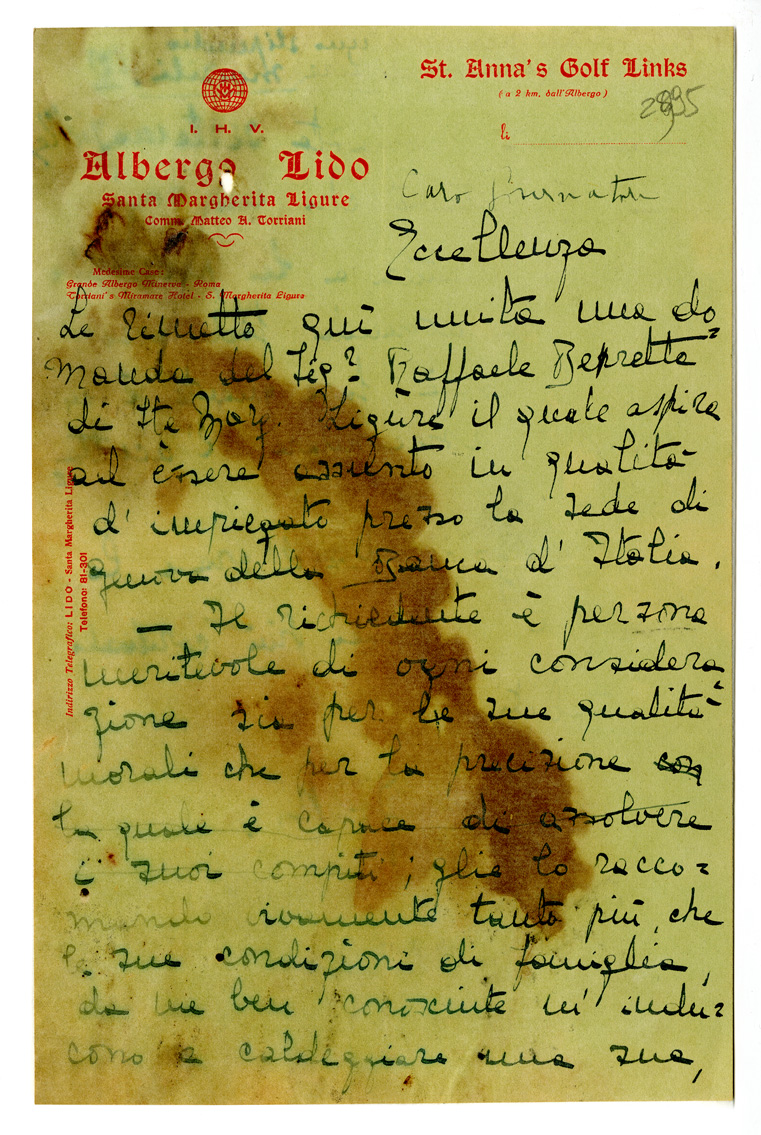 St. Anna's Golf Links
( a 2 km. dall'Albergo )
2895
li
I. H. V.
Albergo Lido
Santa Margherita Ligure
Comm. Matteo A. Torriani
Medesime Case:
Grande Albergo Minerva - Roma
Torriani's Miramare Hotel - S. Margherita Ligure
Indirizzo Telegrafico: LIDO - Santa Margherita Ligure
Telefono: 81-301
Caro Governatore
Eccellenza
Le rimetto quì unita una do
manda del Sig. Raffaele
di Sta Marg. Ligure il quale aspira
ad essere assunto in qualità
d'impiegato presso la sede di
Genova della Banca d'Italia.
— Il richiedente è persona
meritevole di ogni considera
zione sia per le sue qualità
morali che per la precisione con
la quale è capace di assolvere
i suoi compiti; glie lo racco=
mando vivamente tanto più che
le sue condizioni di famiglia,
da me ben conosciute m'indu=
cono a caldeggiare una sua,